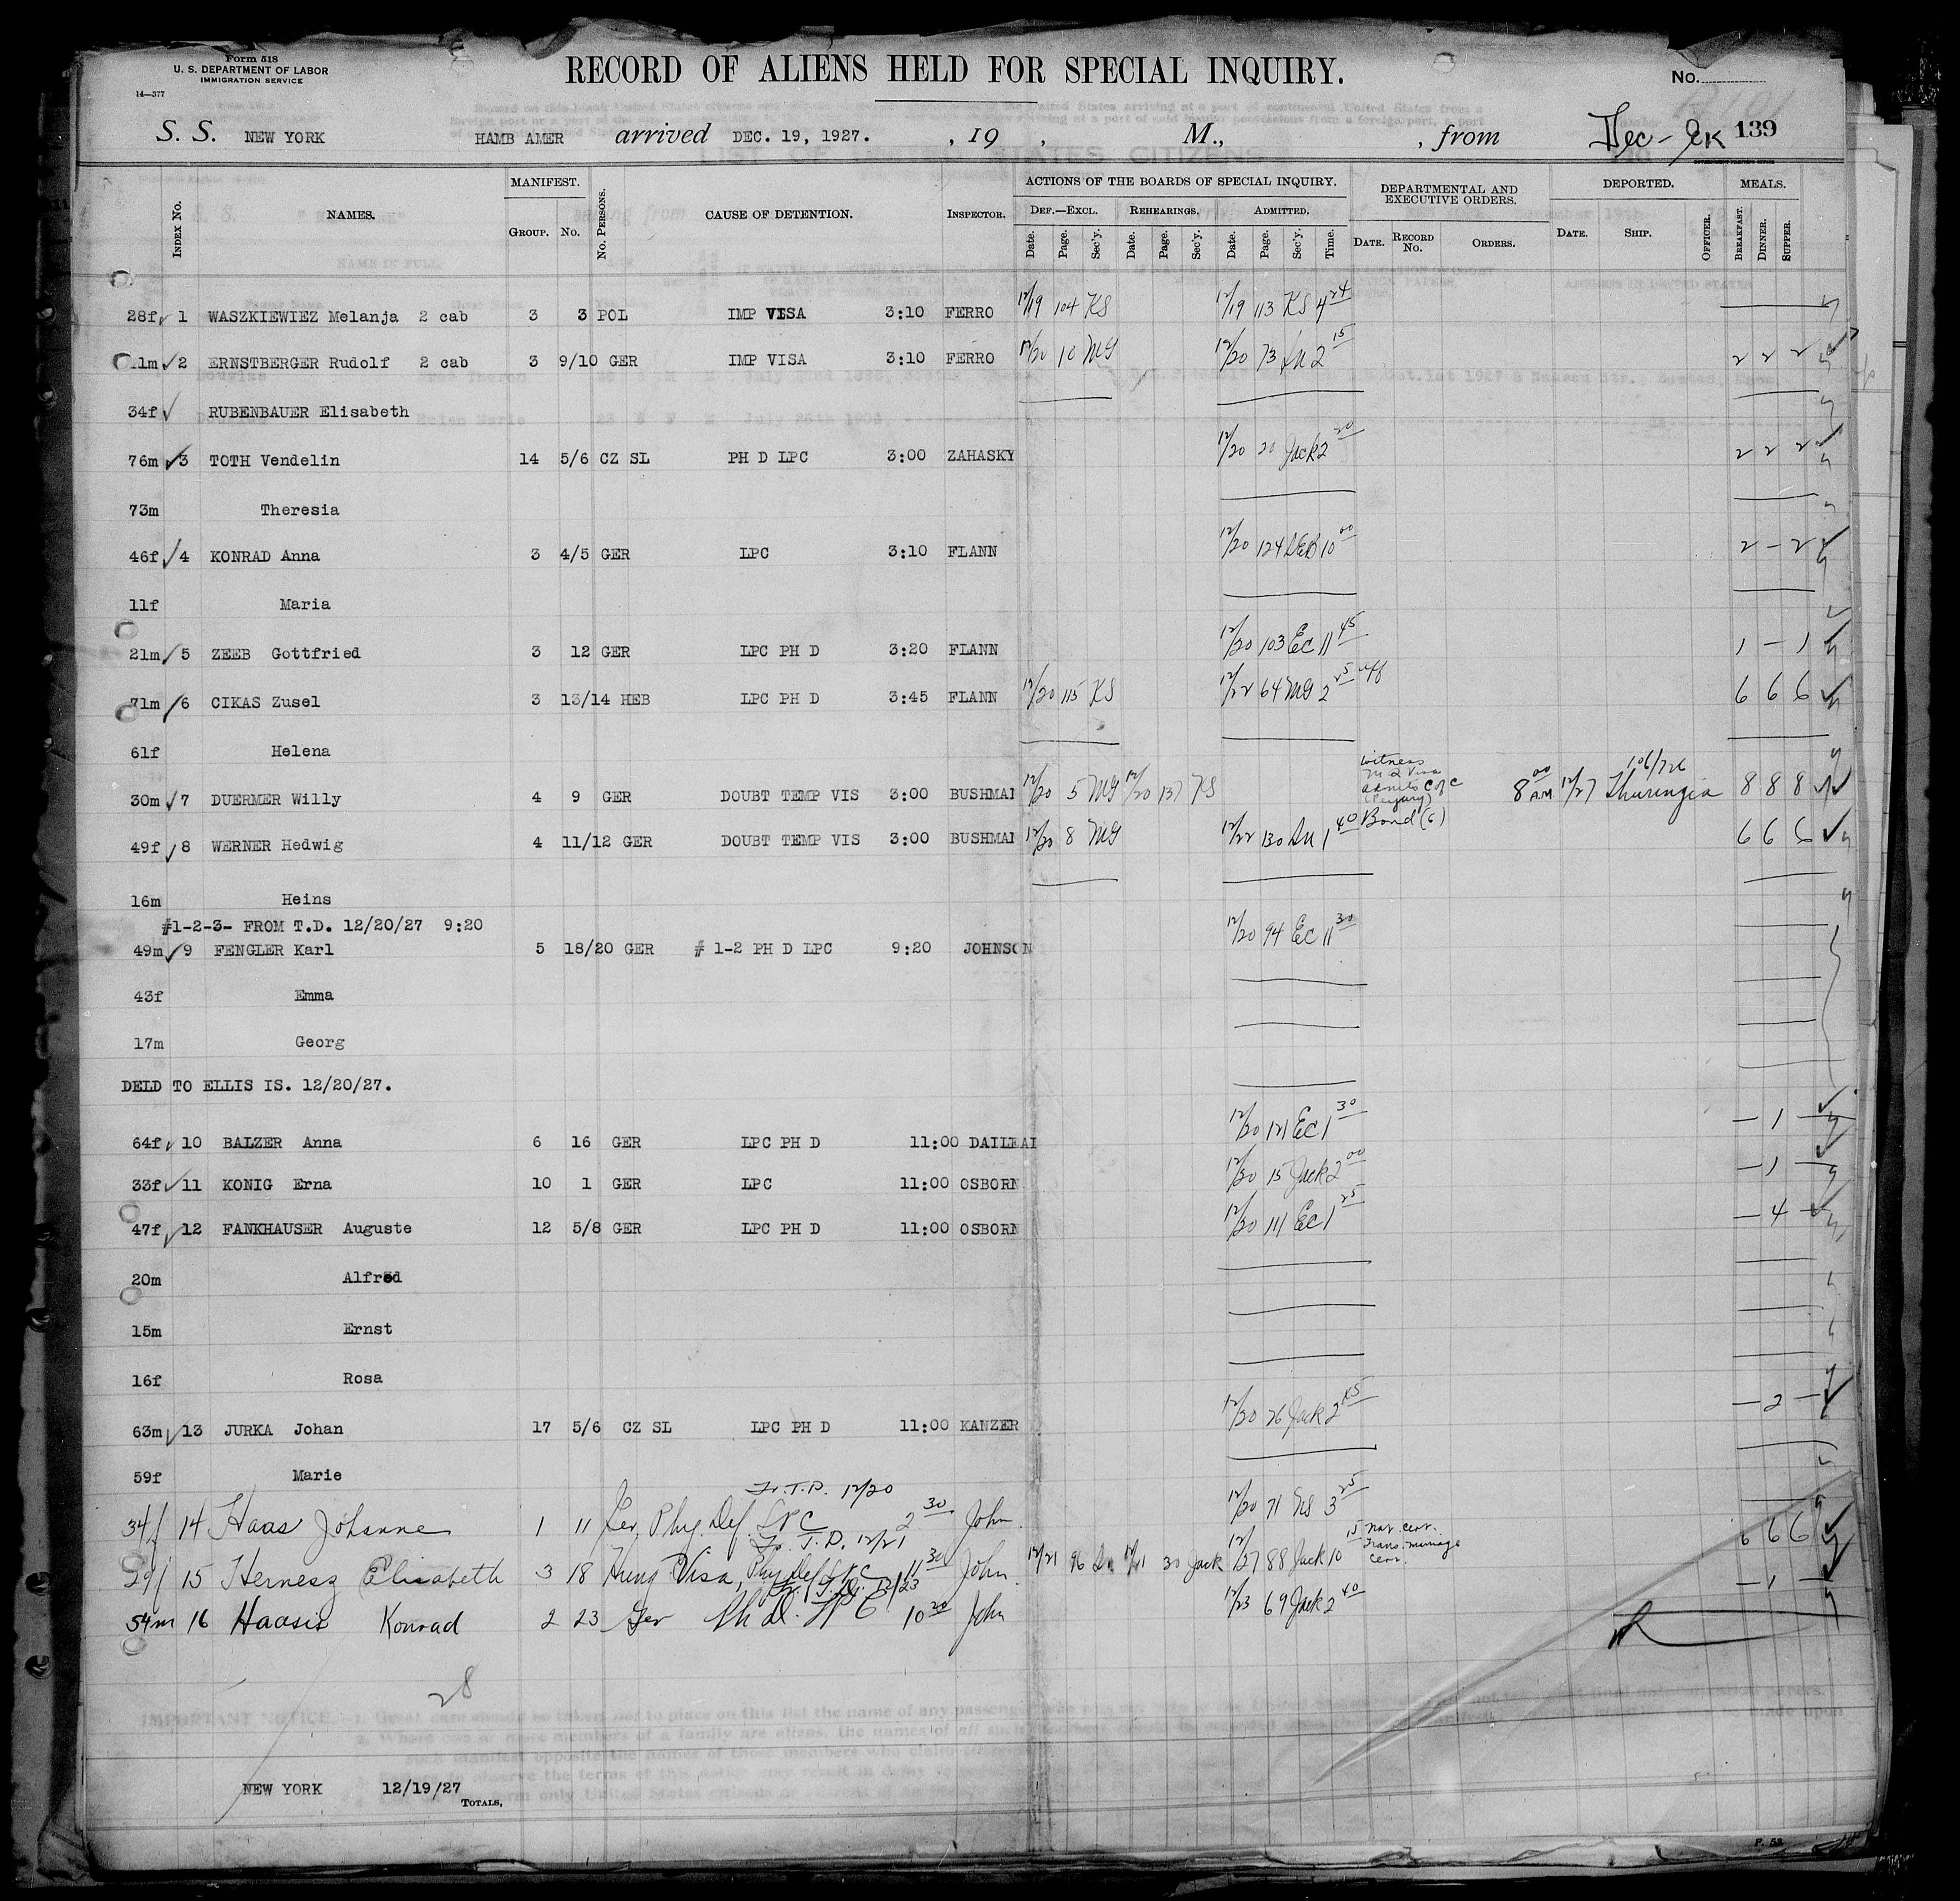 Form 518
U. S. DEPARTMENT OF LABOR
IMMIGRATION SERVICE
14—377
RECORD OF ALIENS HELD FOR SPECIAL INQUIRY.
No.
S. S. NEW YORK HAMB AMER arrived DEC. 19, 1927. , 19 , M., , from 139
INDEX No. NAMES. MANIFEST. GROUP. No. No. PERSONS. CAUSE OF DETENTION. INSPECTOR. ACTIONS OF THE BOARDS OF SPECIAL INQUIRY. DEPARTMENTAL AND EXECUTIVE ORDERS. DEPORTED. MEALS.
DEF.—EXCL. REHEARINGS. ADMITTED.
Date. Page. Sec'y. Date. Page. Sec'y. Date. Page. Sec'y. Time. DATE. RECORD No. ORDERS. DATE. SHIP. OFFICER. BREAKFAST. DINNER. SUPPER.
28f 1 WASZKIEWIEZ Melanja 2 cab 3 3 POL IMP VISA 3:10 FERRO 12/19 104 KS 12/19 113 KS 4 24
11m 2 ERNSTBERGER Rudolf 2 cab 3 9/10 GER IMP VISA 3:10 FERRO 12/20 10 MG 12/20 73 2 15 2 2 2
34f RUBENBAUER Elisabeth
76m 3 TOTH Vendelin 14 5/6 CZ SL PH D LPC 3:00 ZAHASKY 12/20 20 Jack 2 20 2 2 2
73m Theresia
46f 4 KONRAD Anna 3 4/5 GER LPC 3:10 FLANN 12/20 124 DEB 10 00 2 - 2
11f Maria
21m 5 ZEEB Gottfried 3 12 GER LPC PH D 3:20 FLANN 12/20 103 EC 11 45 1 - 1
71m 6 CIKAS Zusel 3 13/14 HEB LPC PH D 3:45 FLANN 12/20 115 KS 12/22 64 MG 2 25 6 6 6
61f Helena
30m 7 DUERMER Willy 4 9 GER DOUBT TEMP VIS 3:00 BUSHMAN 12/20 5 MG 12/20 137 KS witness admits C of C (Perjury) 8 00 AM 12/27 Thuringia 8 8 8
49f 8 WERNER Hedwig 4 11/12 GER DOUBT TEMP VIS 3:00 BUSHMAN 12/20 8 MG 12/22 130 1 40 Bond (6) 6 6 6
16m Heins
#1-2-3- FROM T.D. 12/20/27 9:20
49m 9 FENGLER Karl 5 18/20 GER # 1-2 PH D LPC 9:20 JOHNSON 12/20 94 EC 11 30
43f Emma
17m Georg
DELD TO ELLIS IS. 12/20/27.
64f 10 BALZER Anna 6 16 GER LPC PH D 11:00 12/20 121 EC 1 30 - 1 -
33f 11 KONIG Erna 10 1 GER LPC 11:00 OSBORN 12/20 15 Jack 2 00 - 1 -
47f 12 FANKHAUSER Auguste 12 5/8 GER LPC PH D 11:00 OSBORN 12/20 111 EC 1 25 - 4 -
20m Alfred
15m Ernst
16f Rosa
63m 13 JURKA Johan 17 5/6 CZ SL LPC PH D 11:00 KANZER 12/20 26 Jack 2 15 - 2 -
59f Marie
Fr. T.D. 12/20
34f 14 Haas Johanne 1 11 Ger Phy. Def. LPC 2 30 John 12/20 71 3 25
Fr. T.D. 12/21
29f 15 Hernesz Elisabeth 3 18 Hung Visa, Phy Def LPC 11 30 John 12/21 96 12/21 30 Jack 12/27 88 Jack 10 15 6 6 6
Fr. T.D. 12/23
54m 16 Haasis Konrad 2 23 Ger Ph D. LPC 10 20 John 12/23 69 Jack 2 40 - 1 -
28
NEW YORK 12/19/27
TOTALS,